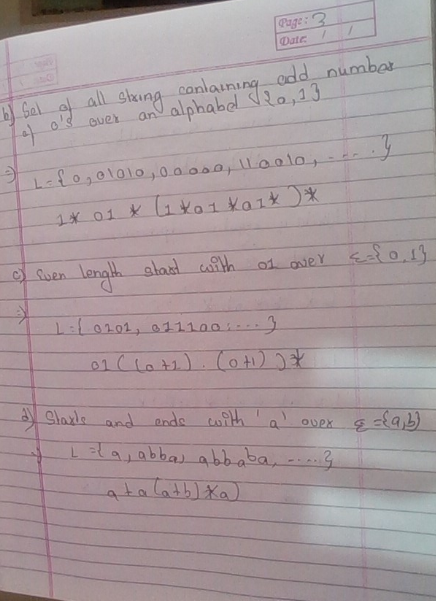 Page: 3
Date: / /
b) Set of all string containing odd number
of 0's over an alphabet {0,1}
⇒ L={0,01010,00000,110010,....}
1* 01 * (1*01*01*)*
c) Even length start with 01 over Ɛ={0,1}
⇒
L={0101, 011100....}
01((0+1).(0+1))*
d) Starts and ends with 'a' over Ɛ={a,b}
⇒ L={a,abba,abbaba,....}
a+a(a+b)*a)